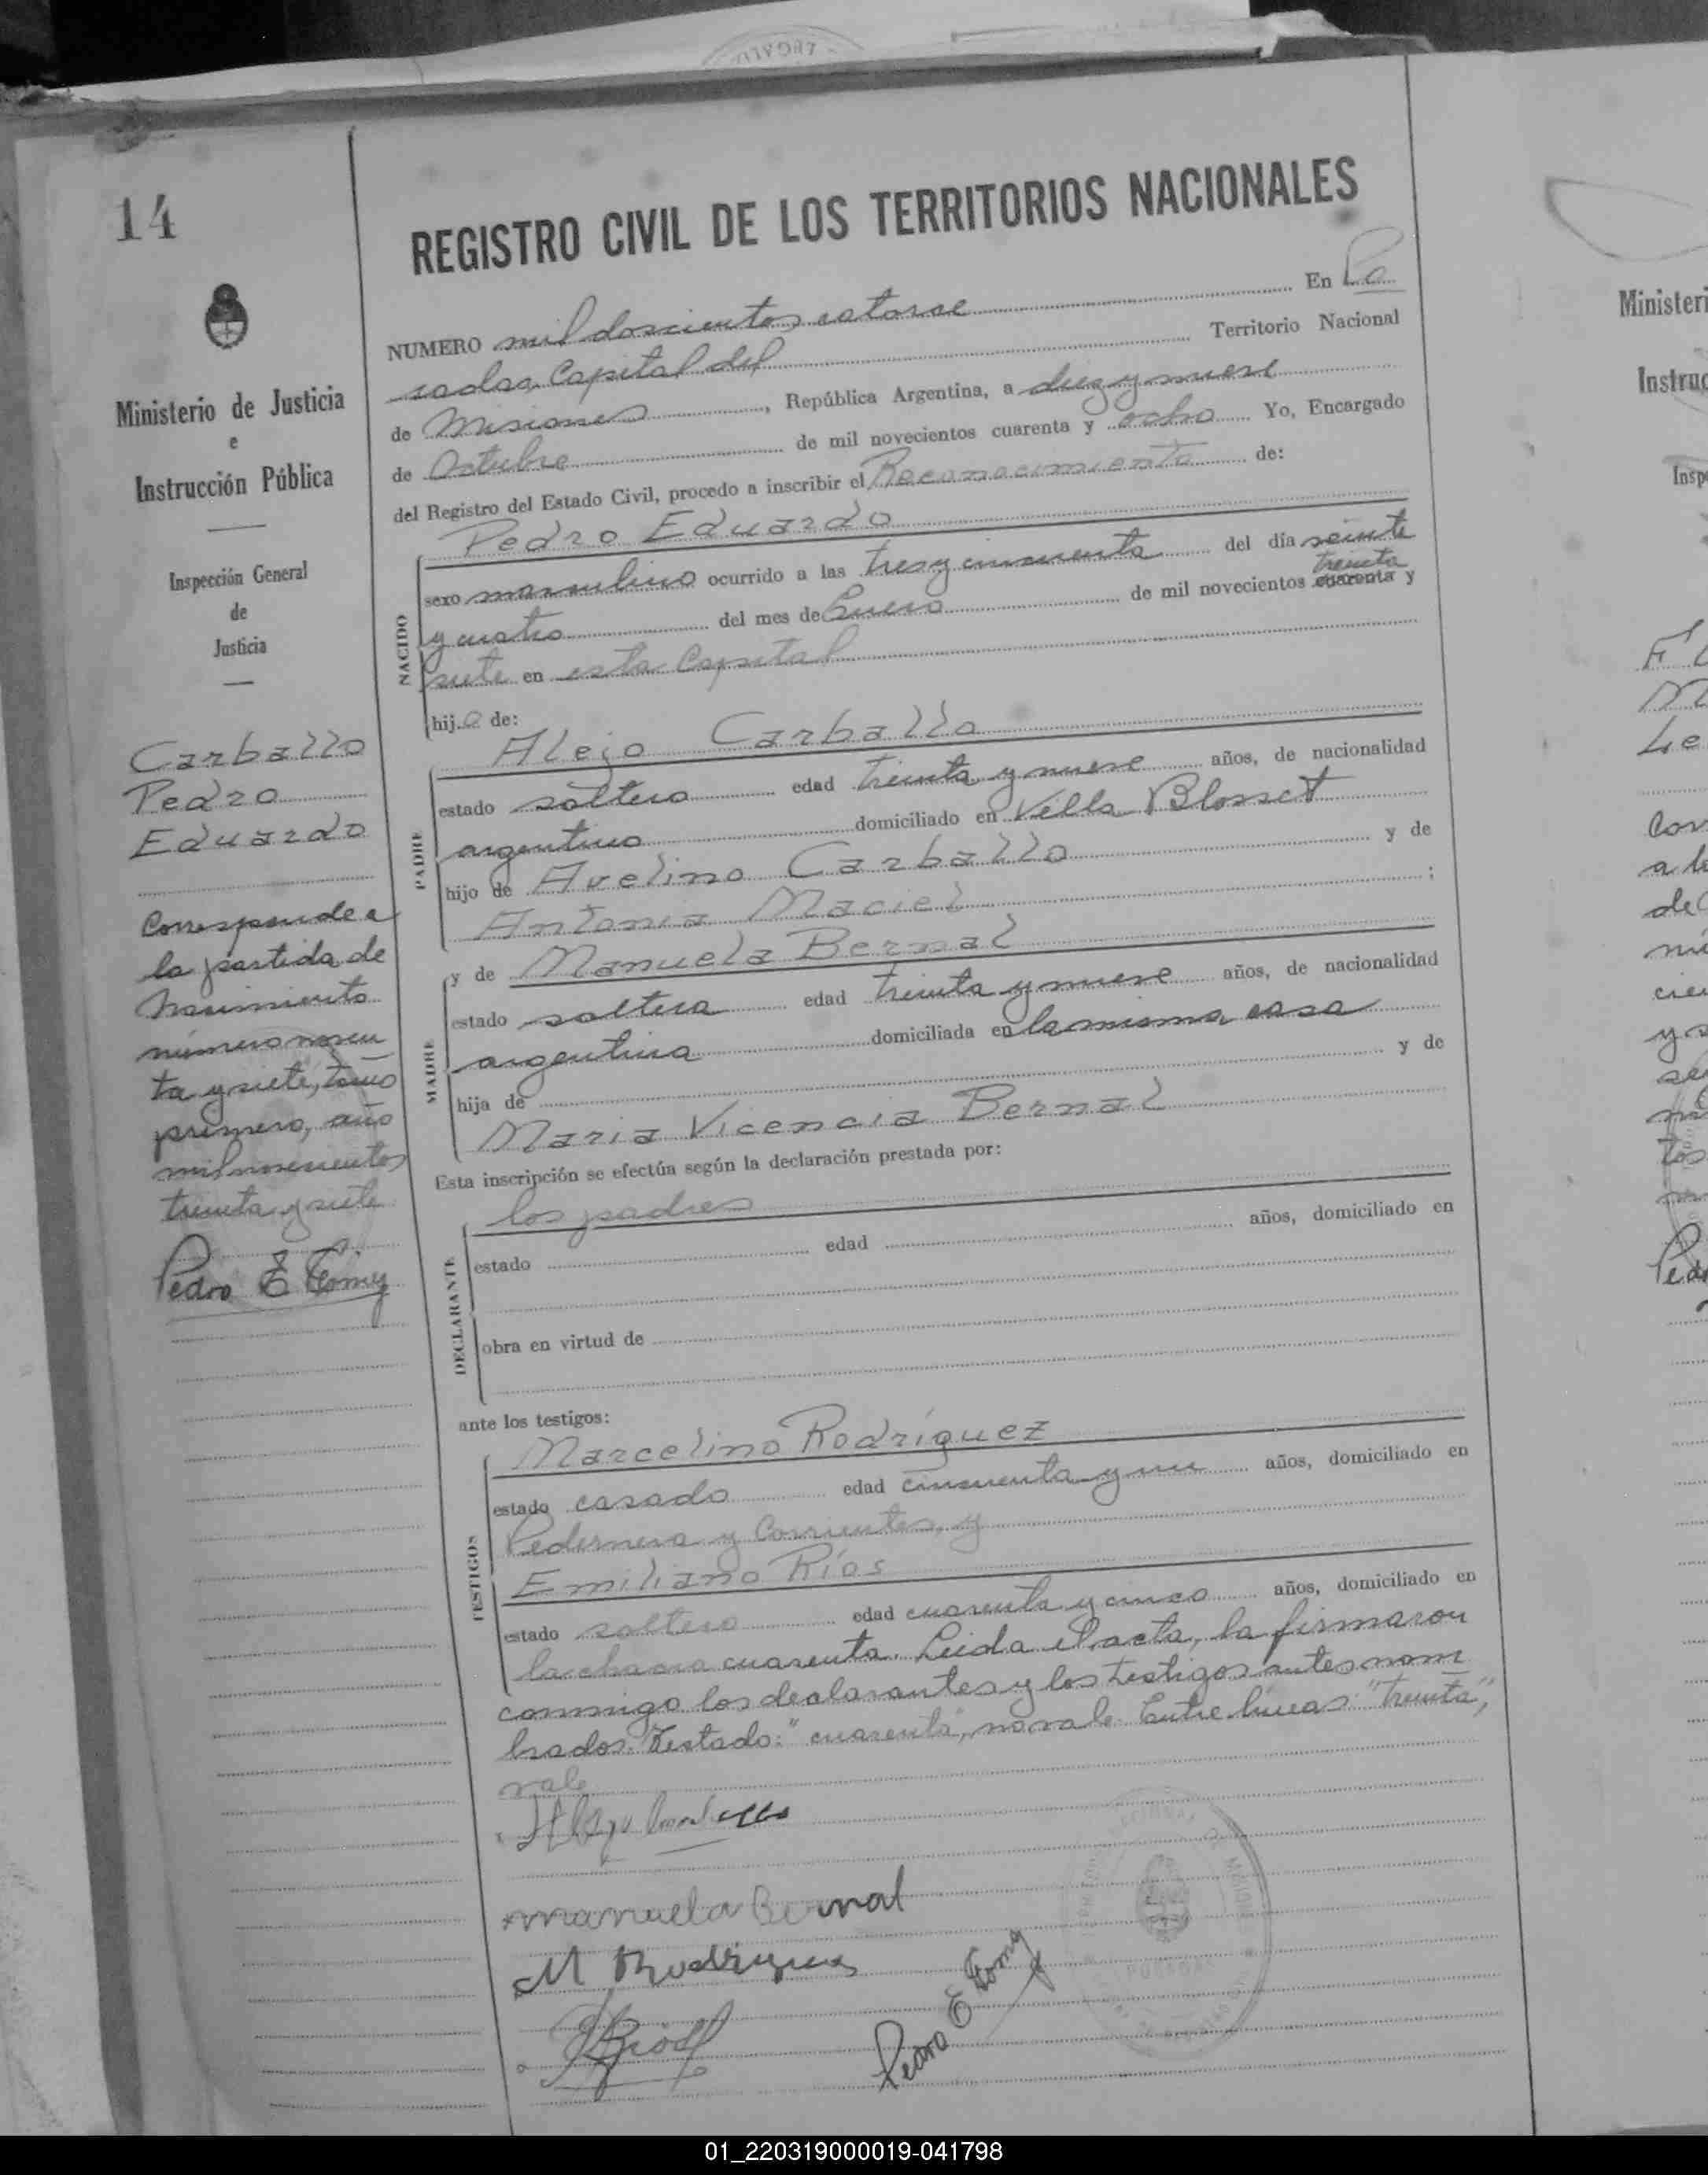 14
Ministerio de Justicia
e
Instrucción Pública
Inspección General
de
Justicia
Carballo
Pedro
Eduardo
Corresponde a
la partida de
nacimiento
número noven
ta y siete, tomo
primero, año
mil novecientos
treinta y siete
Pedro E
REGISTRO CIVIL DE LOS TERRITORIOS NACIONALES
NUMERO mil doscientos catorce En Po
sadas, Capital del Territorio Nacional
de Misiones, República Argentina, a diez y nueve
de Octubre de mil novecientos cuarenta y ocho Yo, Encargado
del Registro del Estado Civil, procedo a inscribir el Reconocimiento de:
Pedro Eduardo
NACIDO
sexo masculino ocurrido a las tres y cincuenta del día veinte
y cuatro del mes de Enero de mil novecientos cuarenta treinta y
siete en esta Capital
hijo de:
Alejo Carballo
PADRE
estado soltero edad treinta y nueve años, de nacionalidad
argentino domiciliado en Villa Blosset
hijo de Avelino Carballo y de
Antonia Maciel ;
y de Manuela Bernal
MADRE
estado soltera edad treinta y nueve años, de nacionalidad
argentina domiciliada en la misma casa
hija de y de
Maria Vicencia Bernal
Esta inscripción se efectúa según la declaración prestada por:
los padres
DECLARANTE
estado edad años, domiciliado en
obra en virtud de
ante los testigos:
Marcelino Rodríguez
TESTIGOS
estado casado edad cincuenta y un años, domiciliado en
Pedernera y Corrientes, y
Emiliano Ríos
estado soltero edad cuarenta y cinco años, domiciliado en
la chacra cuarenta. Leida el acta, la firmaron
conmigo los declarantes y los testigos antes nom
brados. Testado: "cuarenta", no vale. Entre líneas: "treinta",
vale
manuela Bernal
M Rodriguez
Pedro E
POSADAS
Ministeri
Instruc
Insp
01_220319000019-041798